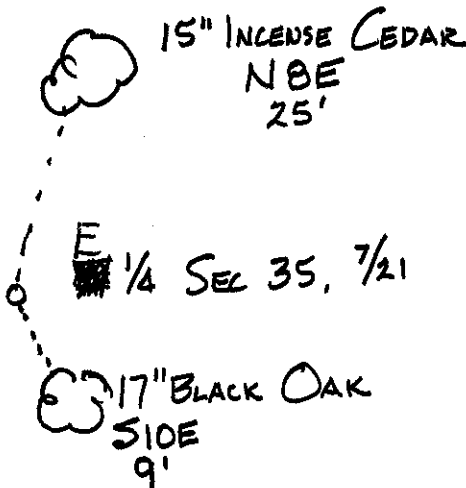 15" INCENSE CEDAR
N 8E
25'
E
1/4 SEC 35, 7/21
17" BLACK OAK
S10E
9'